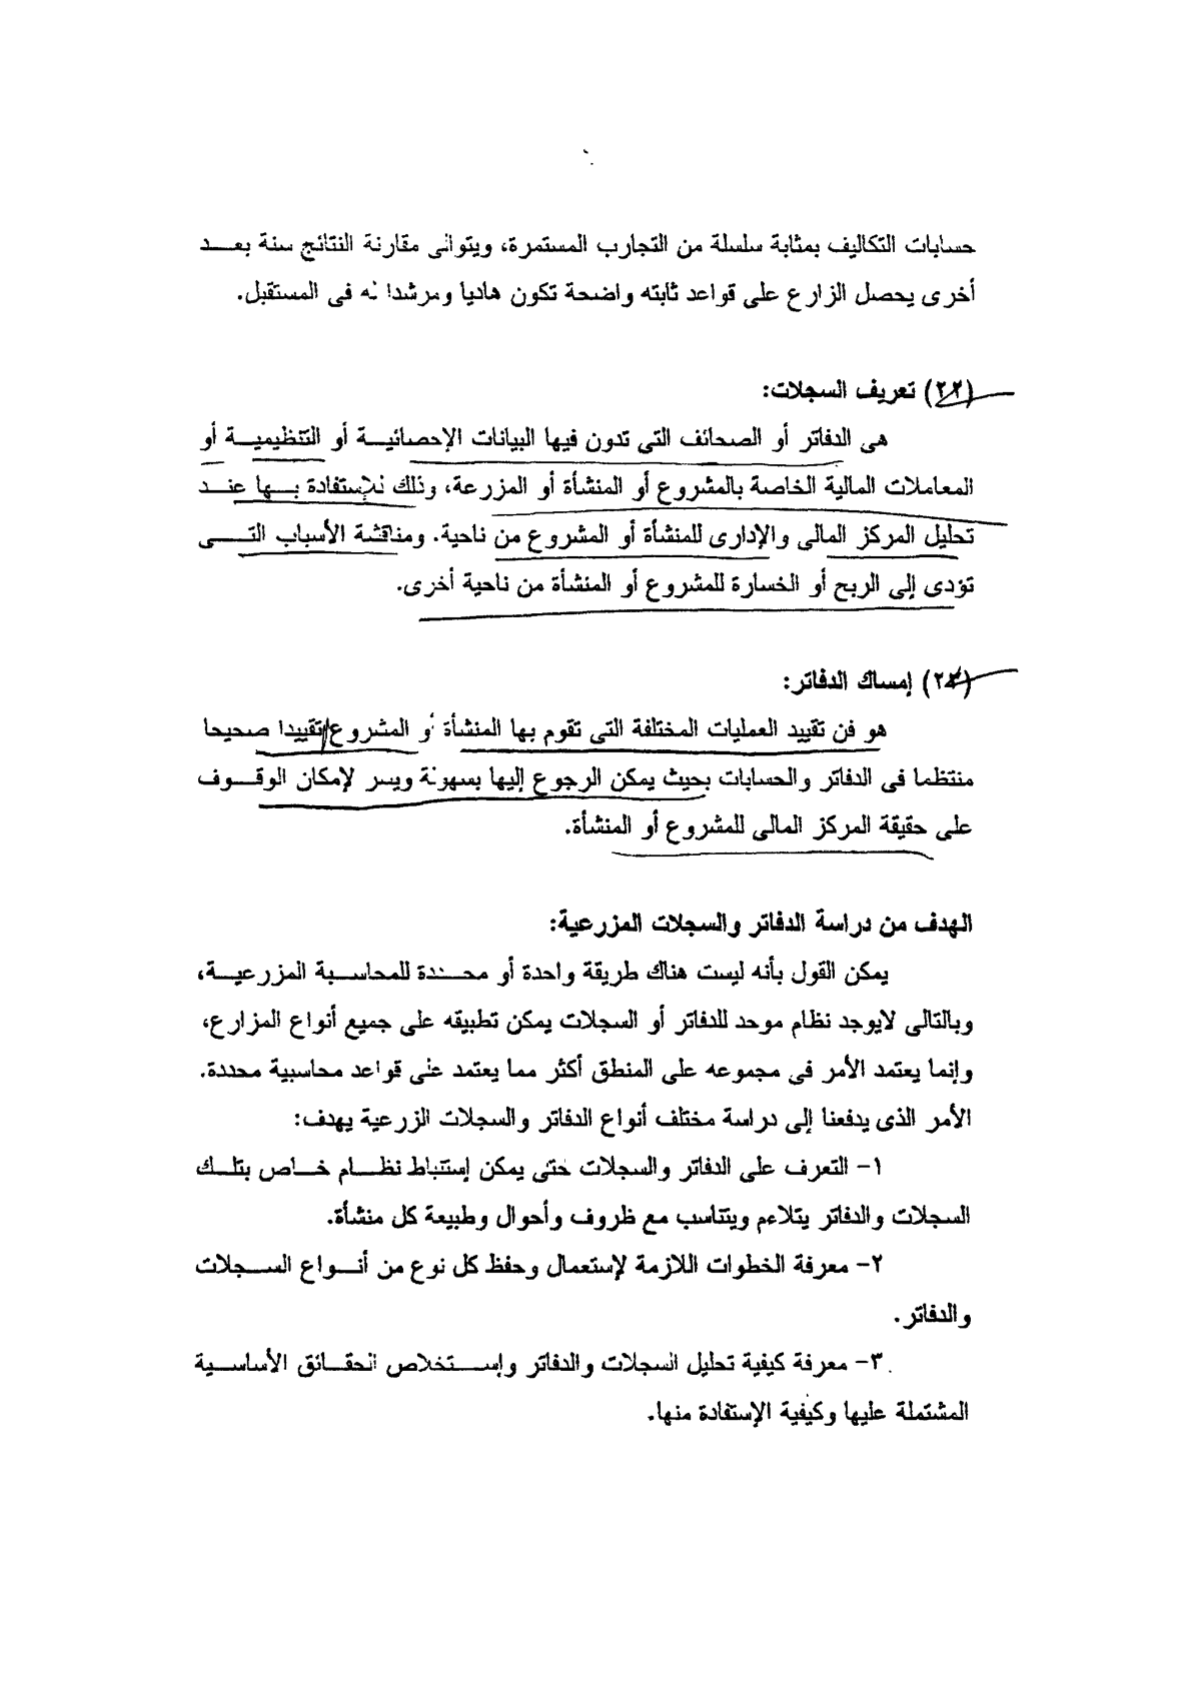 حسابات التكاليف بمثابة سلسلة من التجارب المستمرة، ويتوالى مقارنة النتائج سنة بعد
أخرى يحصل الزارع على قواعد ثابته واضحة تكون هاديا ومرشدا له فى المستقبل.
(٢٢) تعريف السجلات:
هى الدفاتر أو الصحائف التى تدون فيها البيانات الإحصائية أو التنظيمية أو
المعاملات المالية الخاصة بالمشروع أو المنشأة أو المزرعة، وذلك للإستفادة بها عند
تحليل المركز المالى والإدارى للمنشأة أو المشروع من ناحية. ومناقشة الأسباب التى
تؤدى إلى الربح أو الخسارة للمشروع أو المنشأة من ناحية أخرى.
(٢٣) إمساك الدفاتر:
هو فن تقييد العمليات المختلفة التى تقوم بها المنشأة أو المشروع تقييدا صحيحا
منتظما فى الدفاتر والحسابات بحيث يمكن الرجوع إليها بسهولة ويسر لإمكان الوقوف
على حقيقة المركز المالى للمشروع أو المنشأة.
الهدف من دراسة الدفاتر والسجلات المزرعية:
يمكن القول بأنه ليست هناك طريقة واحدة أو محددة للمحاسبة المزرعية،
وبالتالى لايوجد نظام موحد للدفاتر أو السجلات يمكن تطبيقه على جميع أنواع المزارع،
وإنما يعتمد الأمر فى مجموعه على المنطق أكثر مما يعتمد على قواعد محاسبية محددة.
الأمر الذى يدفعنا إلى دراسة مختلف أنواع الدفاتر والسجلات الزرعية يهدف:
١- التعرف على الدفاتر والسجلات حتى يمكن إستنباط نظام خاص بتلك
السجلات والدفاتر يتلاءم ويتناسب مع ظروف وأحوال وطبيعة كل منشأة.
٢- معرفة الخطوات اللازمة لإستعمال وحفظ كل نوع من أنواع السجلات
والدفاتر.
٣- معرفة كيفية تحليل السجلات والدفاتر وإستخلاص الحقائق الأساسية
المشتملة عليها وكيفية الإستفادة منها.